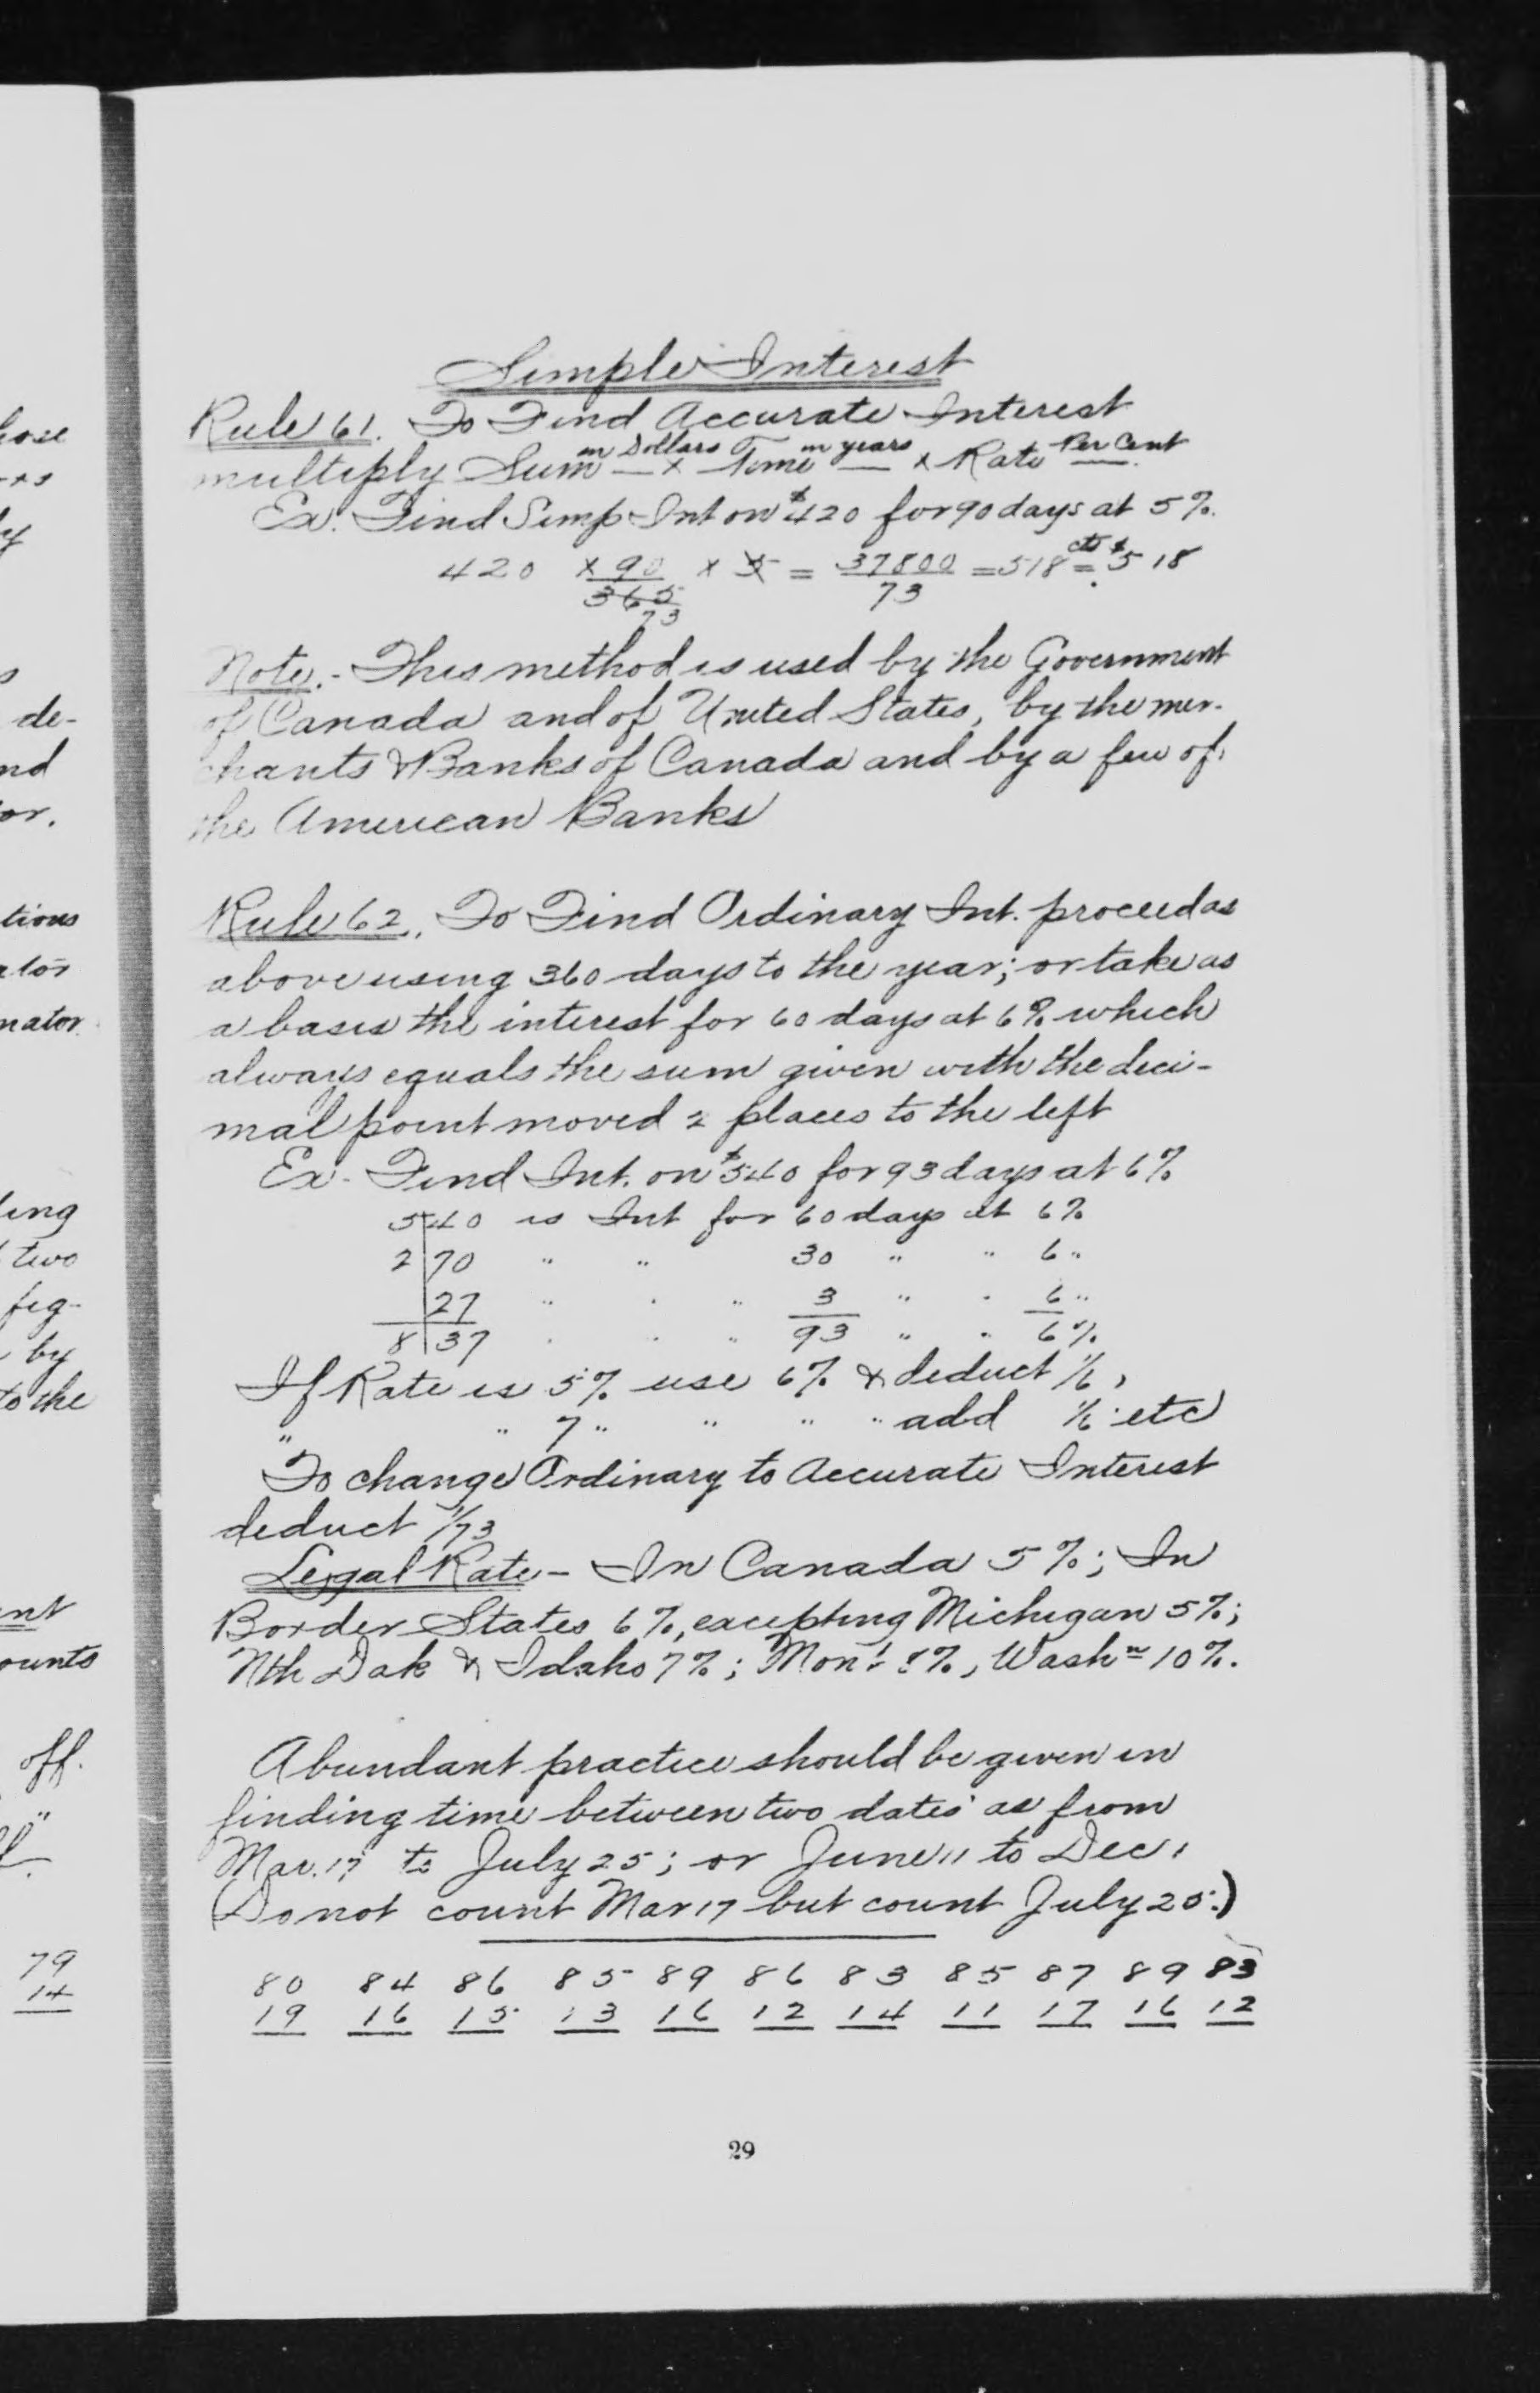 Simple Interest
Rule 61. To Find Accurate Interest
multiply Sum in Dollars × Time in years × Rate Per Cent.
Ex. Find Simp Int on $420 for 90 days at 5%.
420 × 90/365 × 5 = 37800/73 = 518 cts = $5.18
73
Note.- This method is used by the Government
of Canada and of United States, by the mer-
chants & Banks of Canada and by a few of
the American Banks
Rule 62. To Find Ordinary Int. proceed as
above using 360 days to the year; or take as
a basis the interest for 60 days at 6% which
always equals the sum given with the deci-
mal point moved 2 places to the left
Ex- Find Int. on $540 for 93 days at 6%
5|40 is Int for 60 days at 6%
2|70 " " 30 " " 6 "
|27 " " " 3 " " 6 "
8|37 " " " 93 " " 6%
If Rate is 5% use 6% & deduct 1/6,
" " 7 " " " " add 1/6 etc
To change Ordinary to Accurate Interest
deduct 1/73
Legal Rate - In Canada 5%; In
Border States 6%, excepting Michigan 5%;
Nth Dak & Idaho 7%; Mont 8%, Washn 10%.
Abundant practice should be given in
finding time between two dates as from
Mar. 17 to July 25; or June 11 to Dec 1
(Do not count Mar 17 but count July 25.)
80 84 86 85 89 86 83 85 87 89 83
19 16 15 13 16 12 14 11 17 16 12
29
hose
ly
de-
nd
or.
tions
ator
nator.
ling
two
fig-
by
to the
ent
ounts
off.
79
14